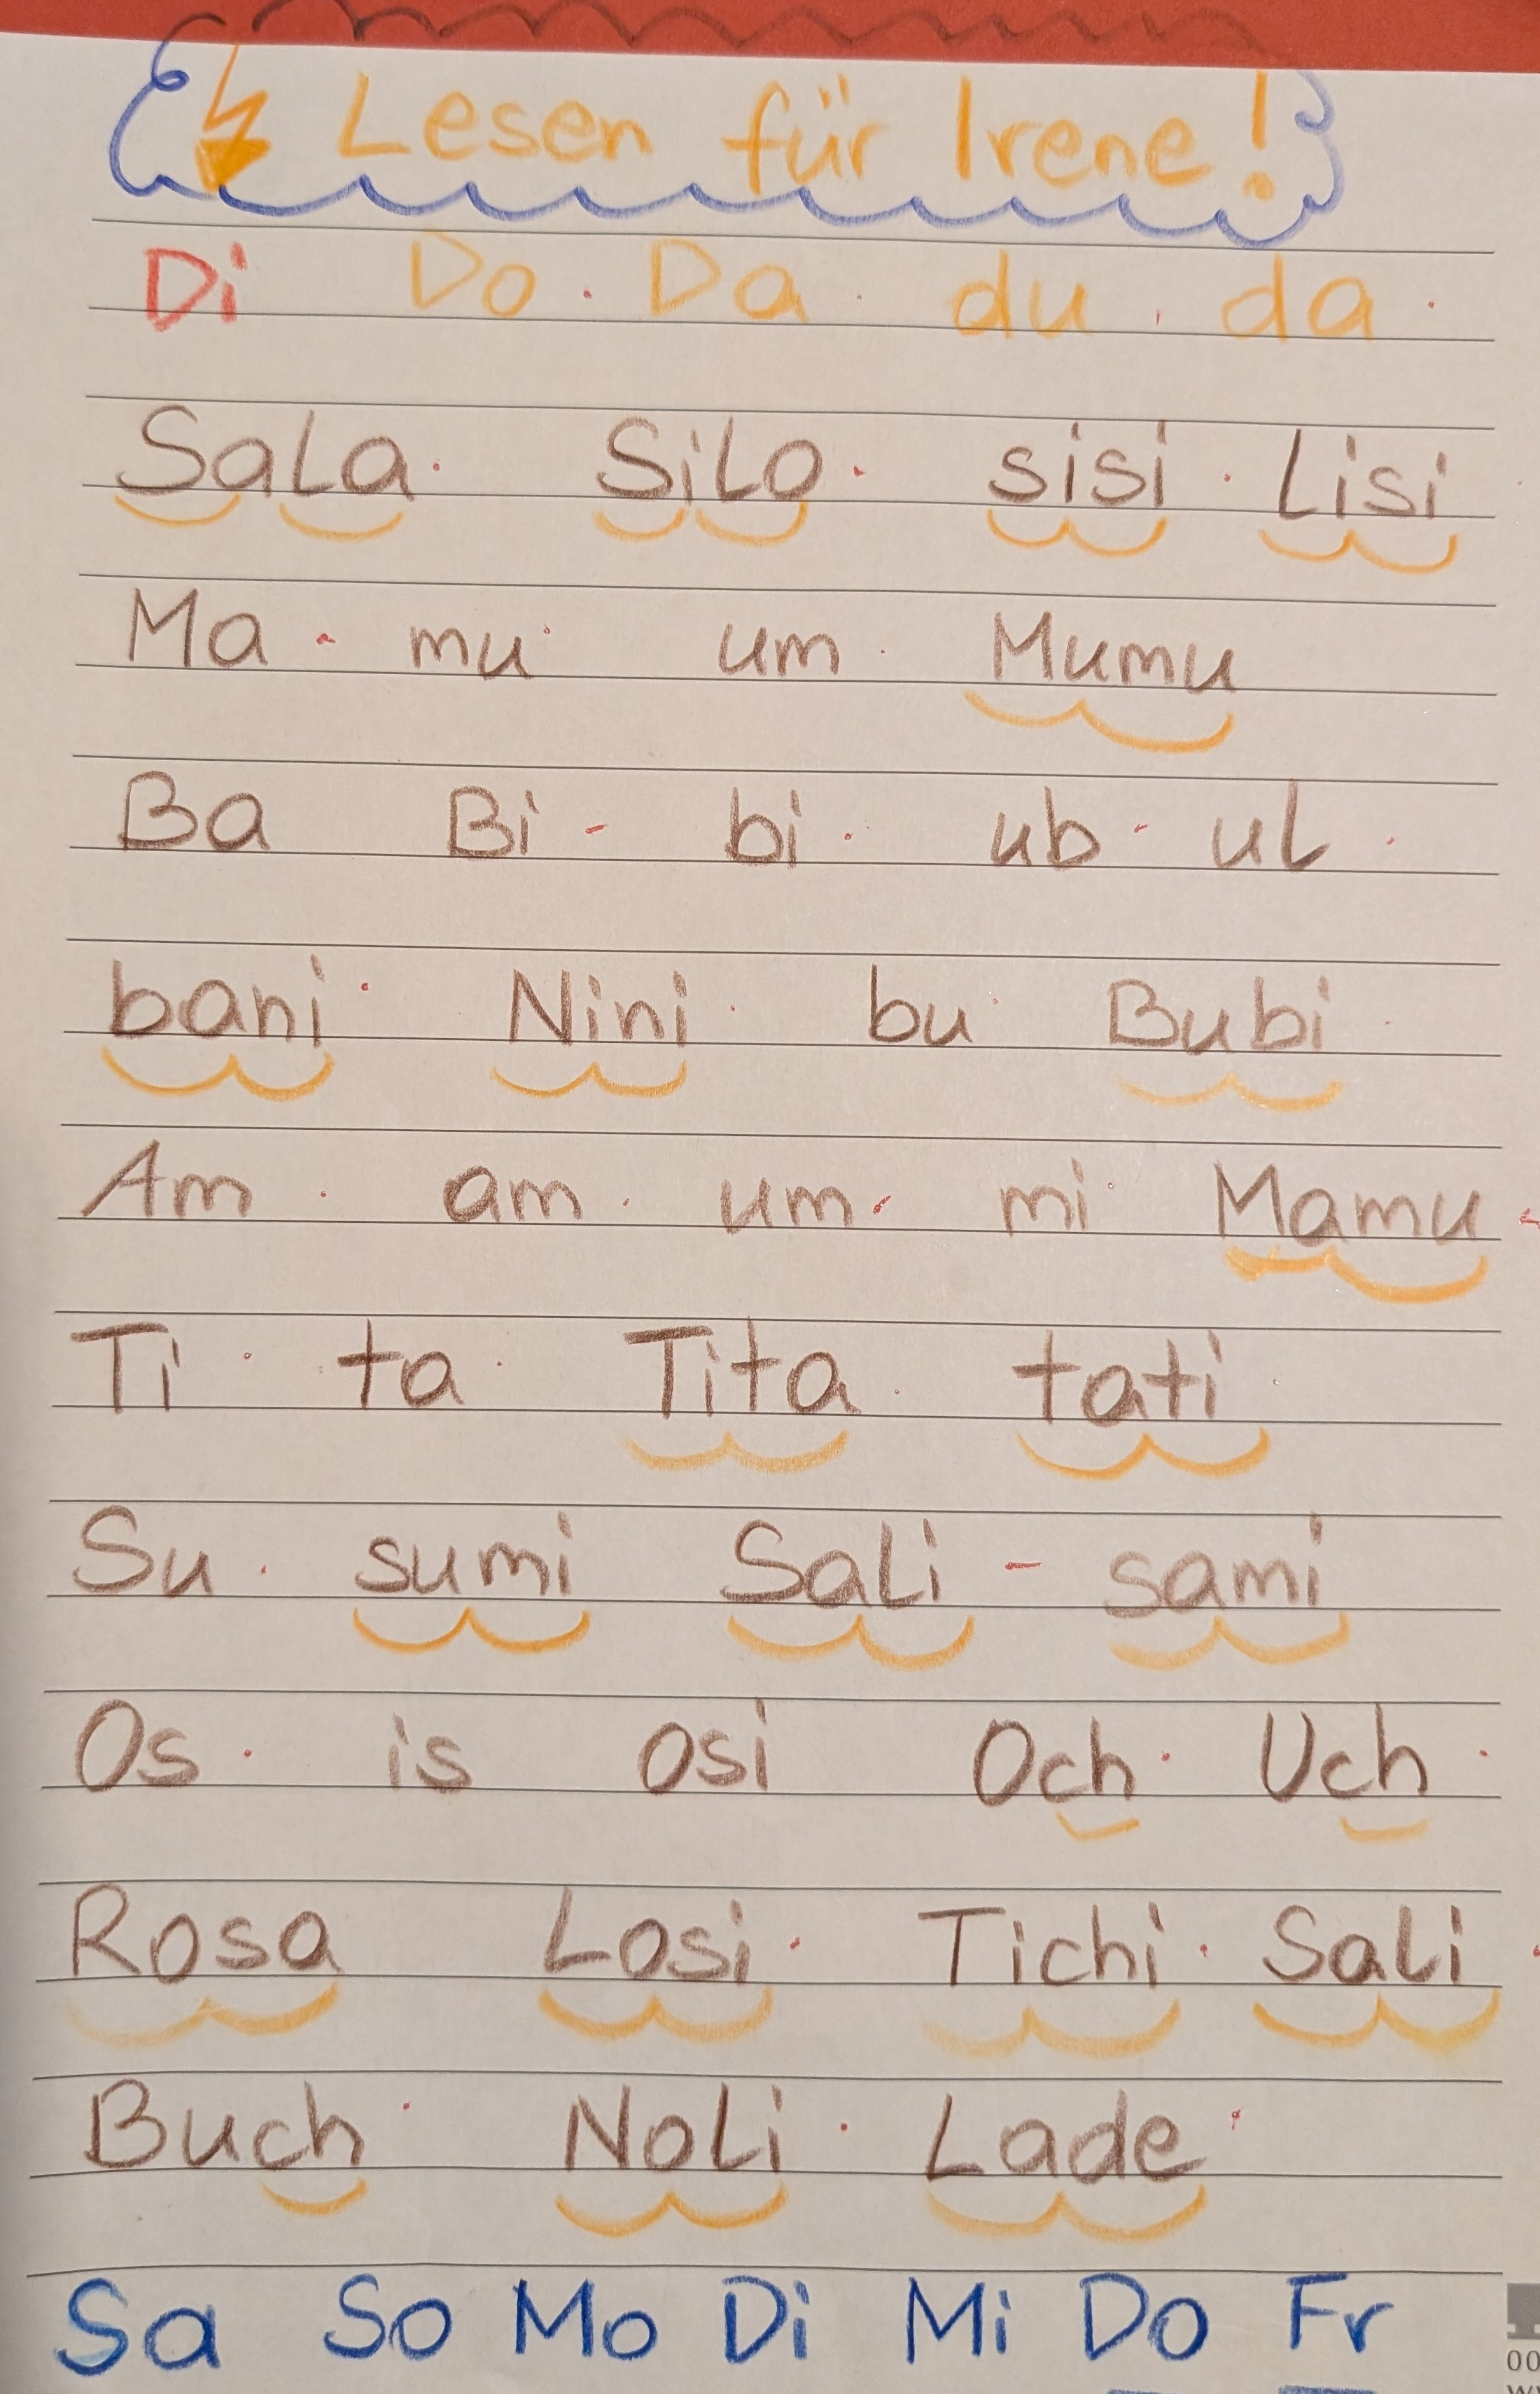 Lesen für Irene!
Di Do. Da. du. da.
SaLa. SiLo. sisi. Lisi
Ma. mu. um. Mumu
Ba Bi - bi. ub - uL.
bani. Nini. bu. Bubi.
Am. am. um. mi. Mamu -
Ti. ta. Tita. tati.
Su. sumi SaLi - sami
Os. is osi Och. Uch.
Rosa Losi. Tichi. SaLi.
Buch. NoLi. Lade.
Sa So Mo Di Mi Do Fr
00